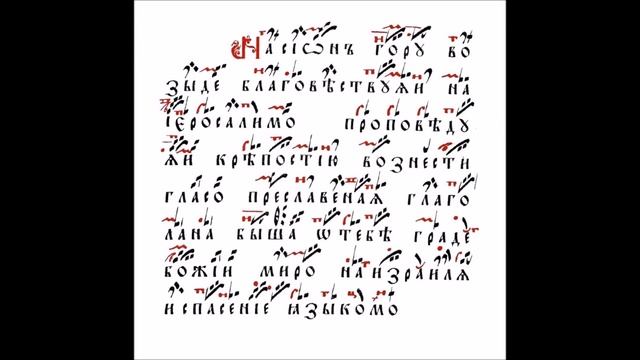 На сіѡнъ гору во
зыде благовѣствуѧи на
іеросалимо проповѣду
ѧи крѣпостію вознести
гласо преславеная глаго
лана быша ѡ тебѣ граде
божіи миро на израиля
и спасеніе ѩзыкомо